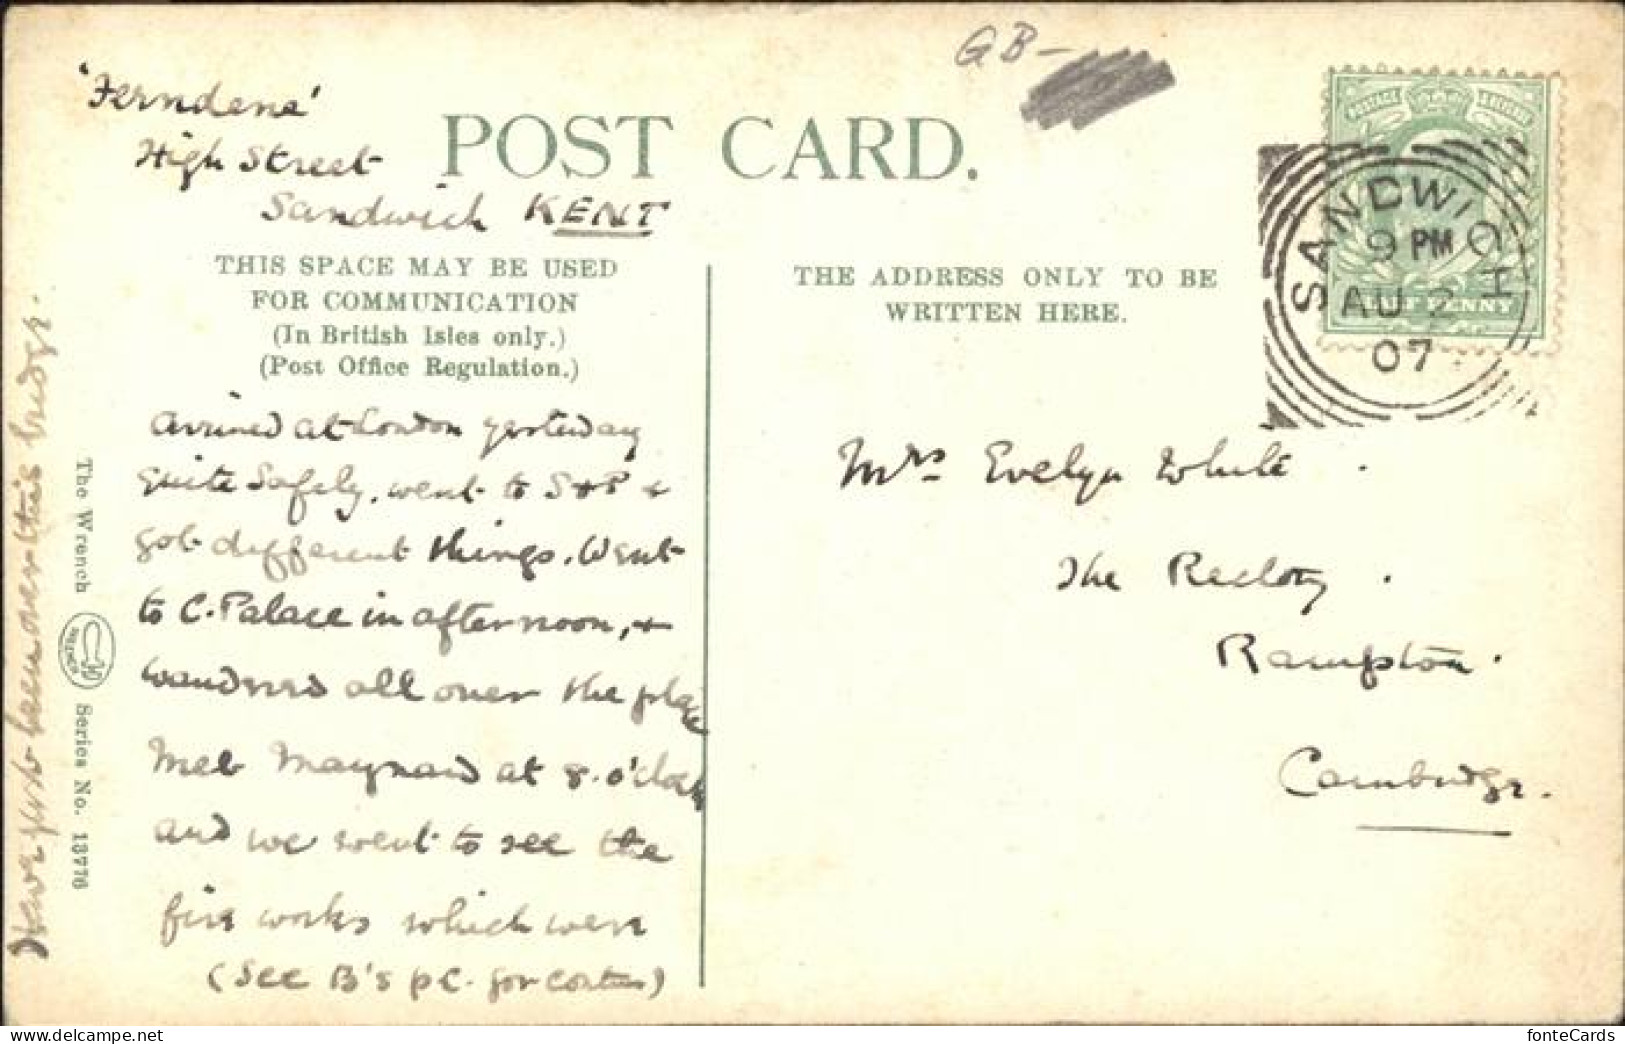 GB-
'Ferndene'
High Street
Sandwich KENT
POST CARD.
THIS SPACE MAY BE USED
FOR COMMUNICATION
(In British Isles only.)
(Post Office Regulation.)
THE ADDRESS ONLY TO BE
WRITTEN HERE.
POSTAGE & REVENUE
HALFPENNY
SANDWICH
9 PM
AU 2
07
arrived at London yesterday
quite safely, went to S & P &
got different things. Went
to C. Palace in afternoon, &
wandered all over the place
Met Maynard at 8. o'clock
and we went to see the
fire works which were
(See B's pc. for contin)
Have just been over this bridge.
The Wrench Series No. 13776
WRENCH
Mrs Evelyn White
The Rectory
Rampton.
Cambridge.
fonteCards